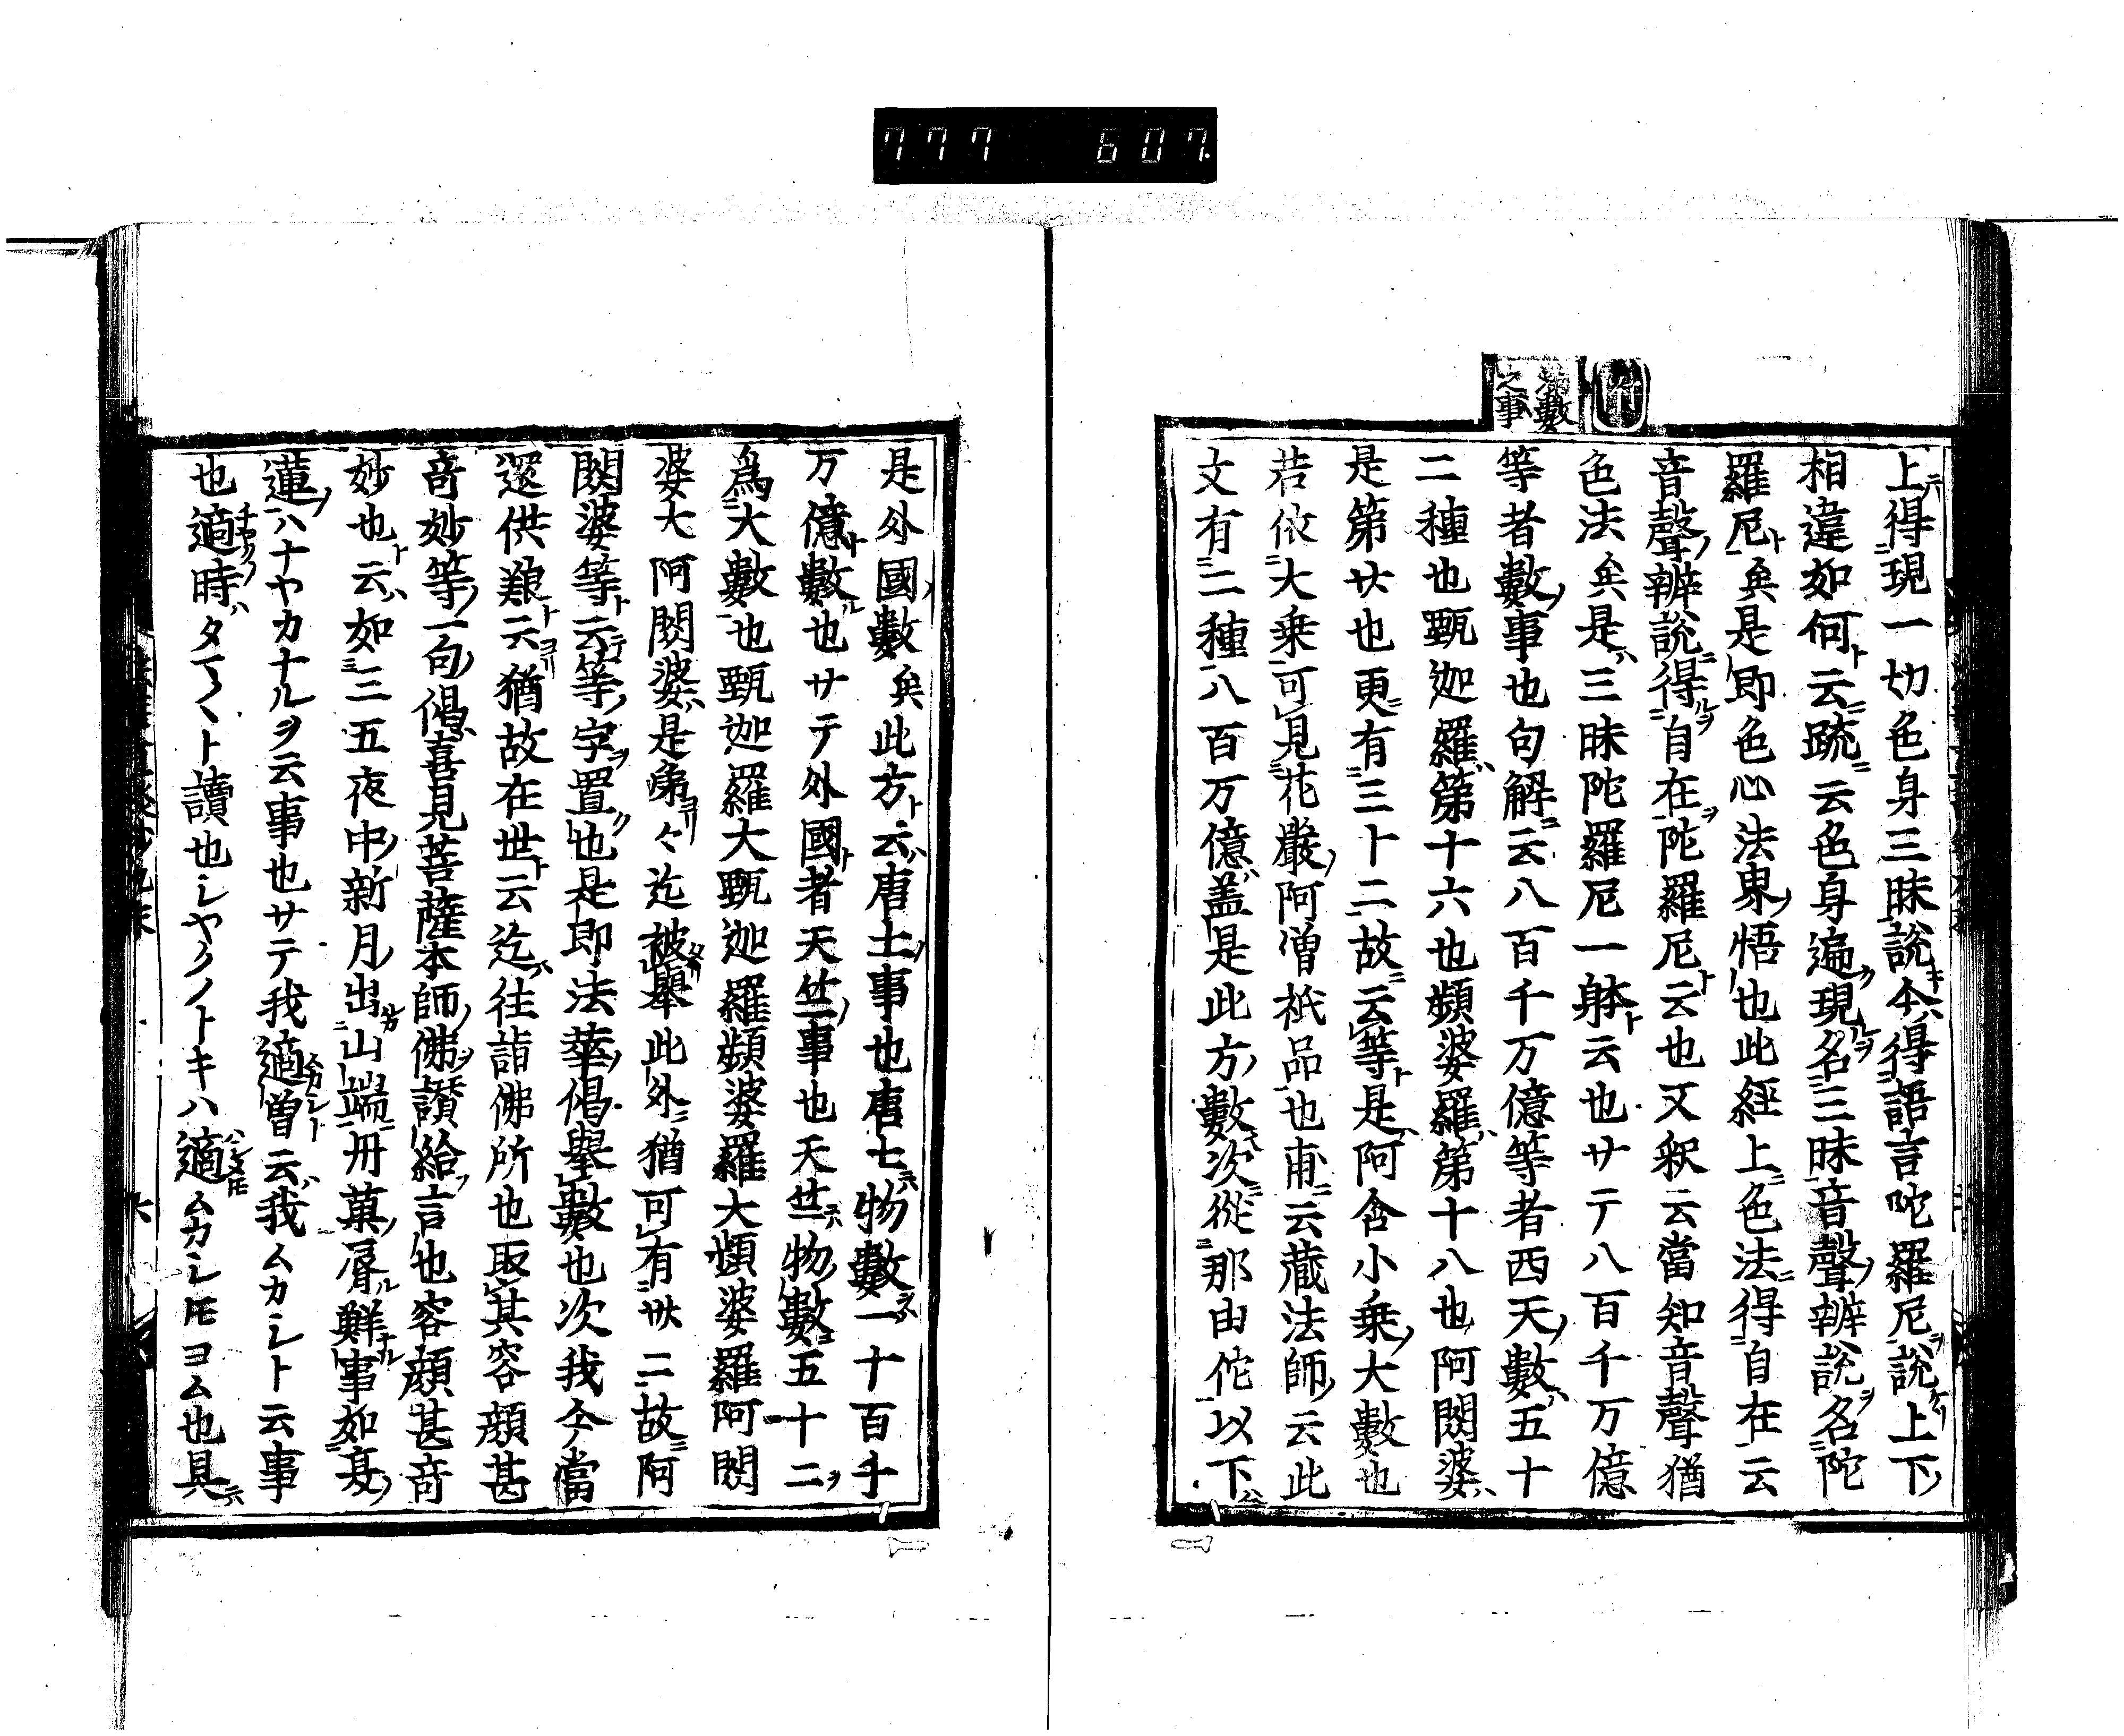 777 607.
算數之事
上得現一切色身三昧說今得語言陀羅尼說上下
相違如何云䟽云色身遍現名三昧音聲辨說名陀
羅尼矣是即色心法界悟也此経上色法得自在云
音聲辨說得自在陀羅尼云也又釈云當知音聲猶
色法矣是三昧陀羅尼一躰云也サテ八百千万億
等者數事也句解云八百千万億等者西天數五十
二種也甄迦羅第十六也頻婆羅第十八也阿閦婆
是第廿也更有三十二故云等是阿含小乗大數也
若依大乗可見花嚴阿僧祇品也甫云蔵法師云此
文有二種八百万億盖是此方數次從那由佗以下
是外國數矣此方云唐土事也唐七物數一十百千
万億數也サテ外國者天竺事也天竺物數五十二
為大數也甄迦羅大甄迦羅頻婆羅大頻婆羅阿閦
婆大阿閦婆是第々迄被舉此外猶可有卅二故阿
閦婆等云等字置也是即法華偈舉數也次我今當
還供養云猶故在世云迄往詣佛所也取其容顔甚
奇妙等一句偈喜見菩薩本師佛讃給言也容顔甚奇
妙也云如二五夜中新月出山端丹菓脣鮮事如芙
蓮ハナヤカナルヲ云事也サテ我適曽云我ムカシト云事
也適時タマ〱ト讀也シヤクノトキハ適ムカシモヨム也具